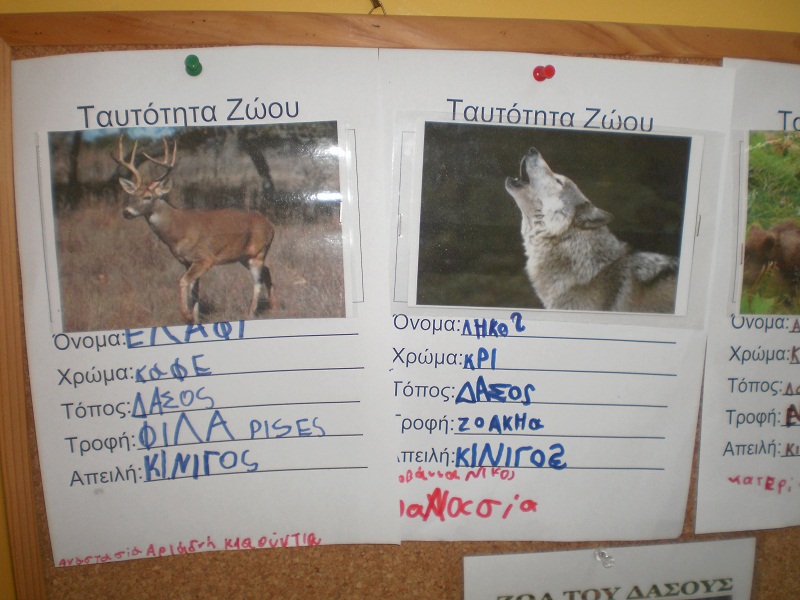 Ταυτότητα Ζώου
Όνομα: ΕΛΑΦΙ
Χρώμα: καφΕ
Τόπος: ΔΑΣΟΣ
Τροφή: ΦΙΛΑ ΡΙSES
Απειλή: ΚΙΝΙΓΟΣ
Αναστασία Αριάδνη
Ταυτότητα Ζώου
Όνομα: ΛΗΚΟΣ
Χρώμα: κΡΙ
Τόπος: ΔΑΣΟΣ
Τροφή: ΖΟΑΚΗα
Απειλή: ΚΙΝΙΓΟΣ
ΝΙΚΟΣ
Όνομα:
Χρώμα:
Τόπος:
Τροφή:
Απειλή:
ΖΩΑ ΤΟΥ ΔΑΣΟΥΣ